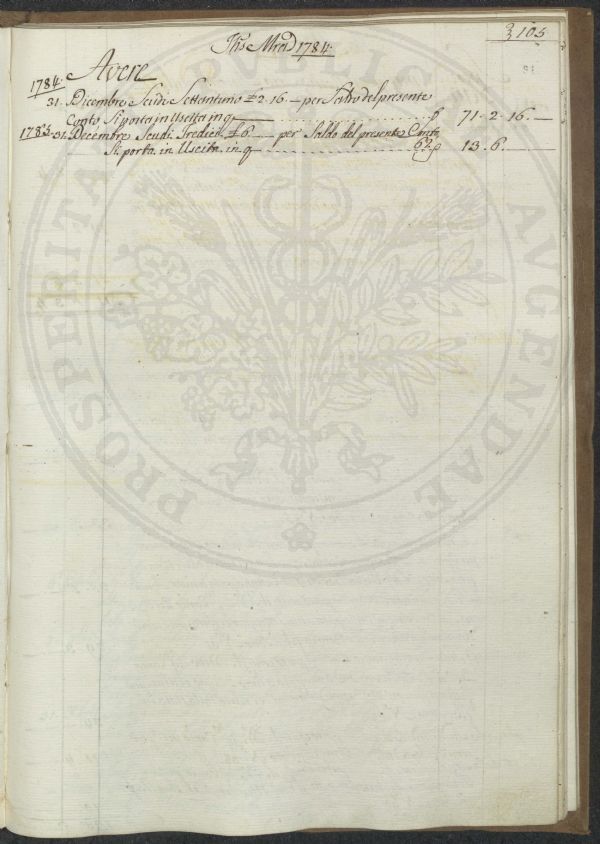 3 105
Jhs Mred 1784.
1784. Avere
31. Dicembre Scudi Settantuno £ 2.16 — per Saldo del presente
Conto Si porta in Uscita in q ... p 71 - 2 - 16. —
1785. 31. Decembre Scudi Tredici £ 6. — per Saldo del presente Conto
Si porta in Uscita in q ... 62 p 13 . 6. —
PROSPERITATI PVBLICAE AVGENDAE